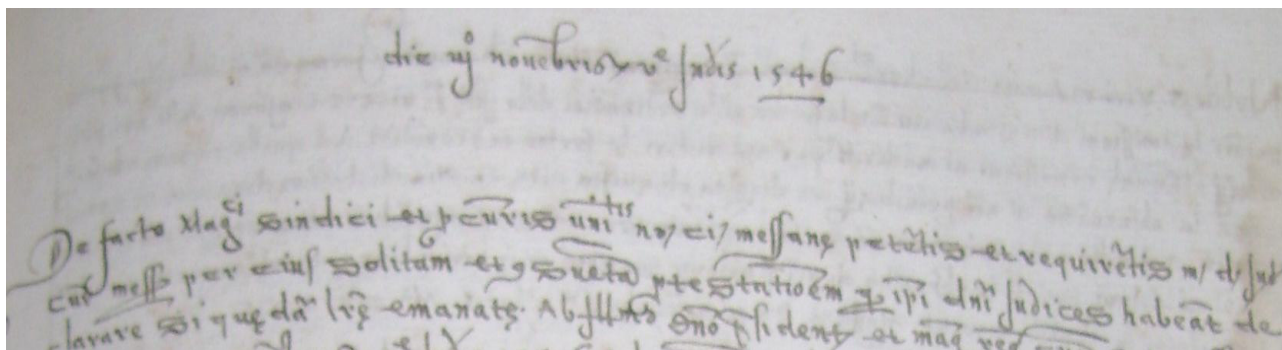 die iijº novēbris v^e Indis 1546
De facto Mag^ci sindici et p̄curis uni^tis no/ ci/ messanę petētis et requirētis m/ d/ Jud
cur̄ mess per eius solitam et 9suetā p̄testatioēm q̄ ip̄i dnī Judices habeāt de
clarare si quędā lr̄ę emanatę Ab Illmō dnō p̄sident et maḡ reg